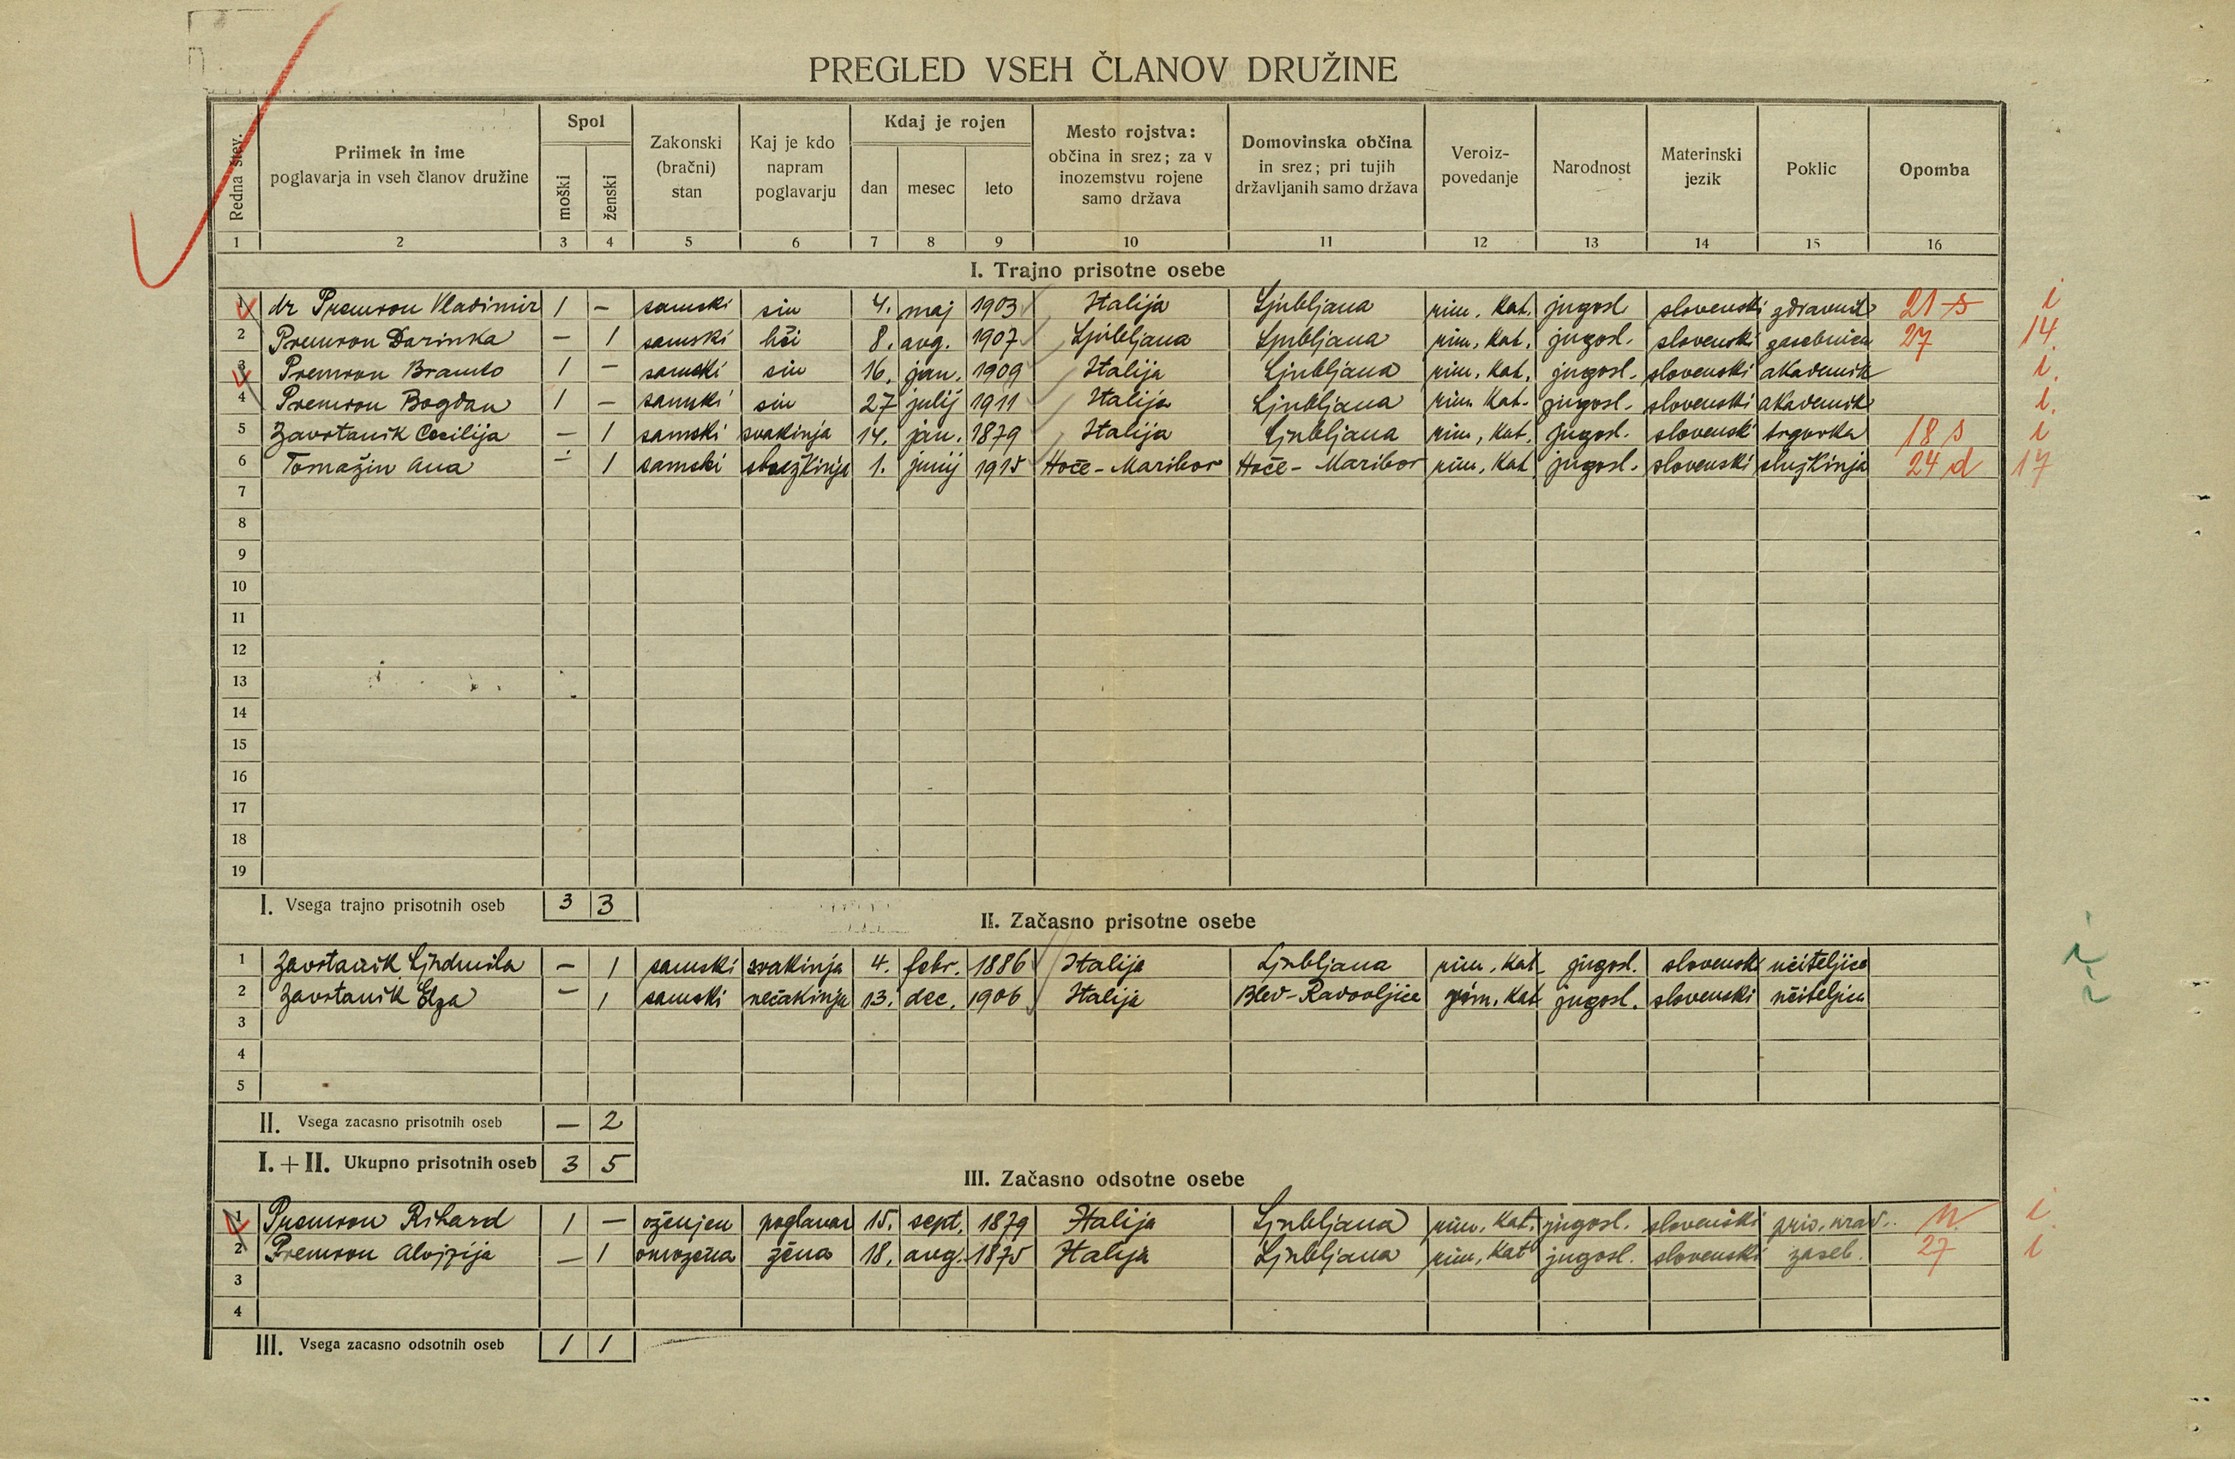 PREGLED VSEH ČLANOV DRUŽINE
Redna štev. Priimek in ime poglavarja in vseh članov družine Spol moški ženski Zakonski (bračni) stan Kaj je kdo napram poglavarju Kdaj je rojen dan mesec leto Mesto rojstva: občina in srez; za v inozemstvu rojene samo država Domovinska občina in srez; pri tujih državljanih samo država Veroizpovedanje Narodnost Materinski jezik Poklic Opomba
1 2 3 4 5 6 7 8 9 10 11 12 13 14 15 16
I. Trajno prisotne osebe
1 dr Premrou Vladimir 1 — samski sin 4. maj 1903 Italija Ljubljana rim. kat. jugosl. slovenski zdravnik 21 s i
2 Premrou Darinka — 1 samski hči 8. avg. 1907 Ljubljana Ljubljana rim. kat. jugosl. slovenski zasebnica 27 14
3 Premrou Branko 1 — samski sin 16. jan. 1909 Italija Ljubljana rim. kat. jugosl. slovenski akademik i
4 Premrou Bogdan 1 — samski sin 27 julij 1911 Italija Ljubljana rim. kat. jugosl. slovenski akademik i.
5 Zavrtanik Cecilija — 1 samski svakinja 14. jan. 1879 Italija Ljubljana rim. kat. jugosl. slovenski trgovka 18 s i
6 Tomažin Ana — 1 samski služkinja 1. junij 1915 Hoče - Maribor Hoče - Maribor rim. kat. jugosl. slovenski služkinja 24 d 17
7
8
9
10
11
12
13
14
15
16
17
18
19
I. Vsega trajno prisotnih oseb 3 3
II. Začasno prisotne osebe
1 Zavrtanik Ljudmila — 1 samski svakinja 4. febr. 1886 Italija Ljubljana rim. kat. jugosl. slovenski učiteljica
2 Zavrtanik Elza — 1 samski nečakinja 13. dec. 1906 Italija Bled-Radovljica rim. kat. jugosl. slovenski učiteljica
3
4
5
II. Vsega zacasno prisotnih oseb — 2
I. + II. Ukupno prisotnih oseb 3 5
III. Začasno odsotne osebe
1 Premrou Rihard 1 — oženjen poglavar 15. sept. 1879 Italija Ljubljana rim. kat. jugosl. slovenski priv. urad. i
2 Premrou Alojzija — 1 omožena žena 18. avg. 1875 Italija Ljubljana rim. kat. jugosl. slovenski zaseb. 27 i
3
4
III. Vsega zacasno odsotnih oseb 1 1